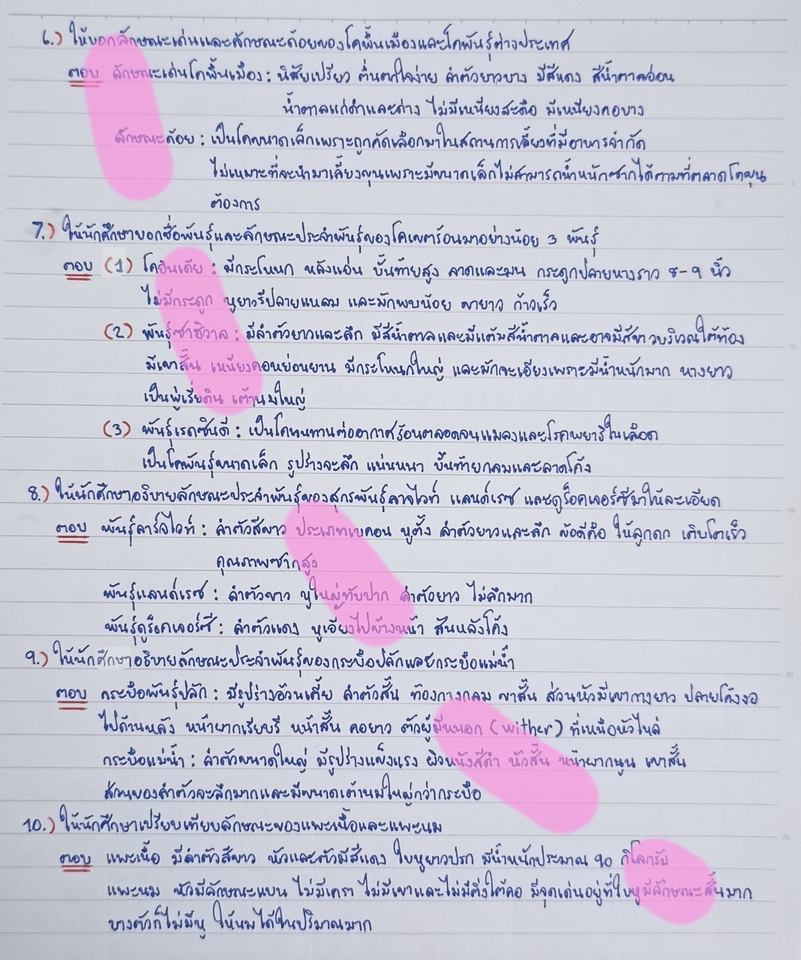 6.) ให้บอกลักษณะเด่นและลักษณะด้อยของโคพื้นเมืองและโคพันธุ์ต่างประเทศ
ตอบ ลักษณะเด่นโคพื้นเมือง : นิสัยเปรียว ตื่นตกใจง่าย ลำตัวยาวบาง มีสีแดง สีน้ำตาลอ่อน
น้ำตาลแก่ดำและด่าง ไม่มีเหนียงสะดือ มีเหนียงคอบาง
ลักษณะด้อย : เป็นโคขนาดเล็กเพราะถูกคัดเลือกมาในสถานการเลี้ยงที่มีอาหารจำกัด
ไม่เหมาะที่จะนำมาเลี้ยงขุนเพราะมีขนาดเล็กไม่สามารถน้ำหนักซากได้ตามที่ตลาดโคขุน
ต้องการ
7.) ให้นักศึกษาบอกชื่อพันธุ์และลักษณะประจำพันธุ์ของโคเขตร้อนมาอย่างน้อย 3 พันธุ์
ตอบ (1) โคอินเดีย : มีกระโหนก หลังแอ่น บั้นท้ายสูง ลาดและมน กระดูกปลายหางราว 8-9 นิ้ว
ไม่มีกระดูก หูยาวรีปลายแหลม และมักพบน้อย ขายาว ก้าวเร็ว
(2) พันธุ์ซาฮิวาล : มีลำตัวยาวและลึก มีสีน้ำตาลและมีแต้มสีน้ำตาลและอาจมีสีขาวบริเวณใต้ท้อง
มีเขาสั้น เหนียงคอหย่อนยาน มีกระโหนกใหญ่ และมักจะเอียงเพราะมีน้ำหนักมาก หางยาว
เป็นพู่เรี่ยดิน เต้านมใหญ่
(3) พันธุ์เรดซินดี : เป็นโคทนทานต่ออากาศร้อนตลอดจนแมลงและโรคพยาธิในเลือด
เป็นโคพันธุ์ขนาดเล็ก รูปร่างจะลึก แน่นหนา บั้นท้ายกลมและลาดโค้ง
8.) ให้นักศึกษาอธิบายลักษณะประจำพันธุ์ของสุกรพันธุ์ลาจไวท์ แลนด์เรซ และดูร็อคเจอร์ซี่มาให้ละเอียด
ตอบ พันธุ์ลาร์จไวท์ : ลำตัวสีขาว ประเภทเบคอน หูตั้ง ลำตัวยาวและลึก ข้อดีคือ ให้ลูกดก เติบโตเร็ว
คุณภาพซากสูง
พันธุ์แลนด์เรซ : ลำตัวขาว หูใหญ่ทับปาก ลำตัวยาว ไม่ลึกมาก
พันธุ์ดูร็อคเจอร์ซี่ : ลำตัวแดง หูเอียงไปข้างหน้า สันหลังโค้ง
9.) ให้นักศึกษาอธิบายลักษณะประจำพันธุ์ของกระบือปลักและกระบือแม่น้ำ
ตอบ กระบือพันธุ์ปลัก : มีรูปร่างอ้วนเตี้ย ลำตัวสั้น ท้องกางกลม ขาสั้น ส่วนหัวมีเขากางยาว ปลายโค้งงอ
ไปด้านหลัง หน้าผากเรียบรี หน้าสั้น คอยาว ตัวผู้มีหนอก (wither) ที่เหนือหัวไหล่
กระบือแม่น้ำ : ลำตัวขนาดใหญ่ มีรูปร่างแข็งแรง ผิวหนังสีดำ หัวสั้น หน้าผากนูน เขาสั้น
ส่วนของลำตัวจะลึกมากและมีขนาดเต้านมใหญ่กว่ากระบือ
10.) ให้นักศึกษาเปรียบเทียบลักษณะของแพะเนื้อและแพะนม
ตอบ แพะเนื้อ มีลำตัวสีขาว หัวและตัวมีสีแดง ใบหูยาวปรก มีน้ำหนักประมาณ 90 กิโลกรัม
แพะนม หัวมีลักษณะแบน ไม่มีเครา ไม่มีเขาและไม่มีติ่งใต้คอ มีจุดเด่นอยู่ที่ใบหูมีลักษณะสั้นมาก
บางตัวก็ไม่มีหู ให้นมได้ในปริมาณมาก